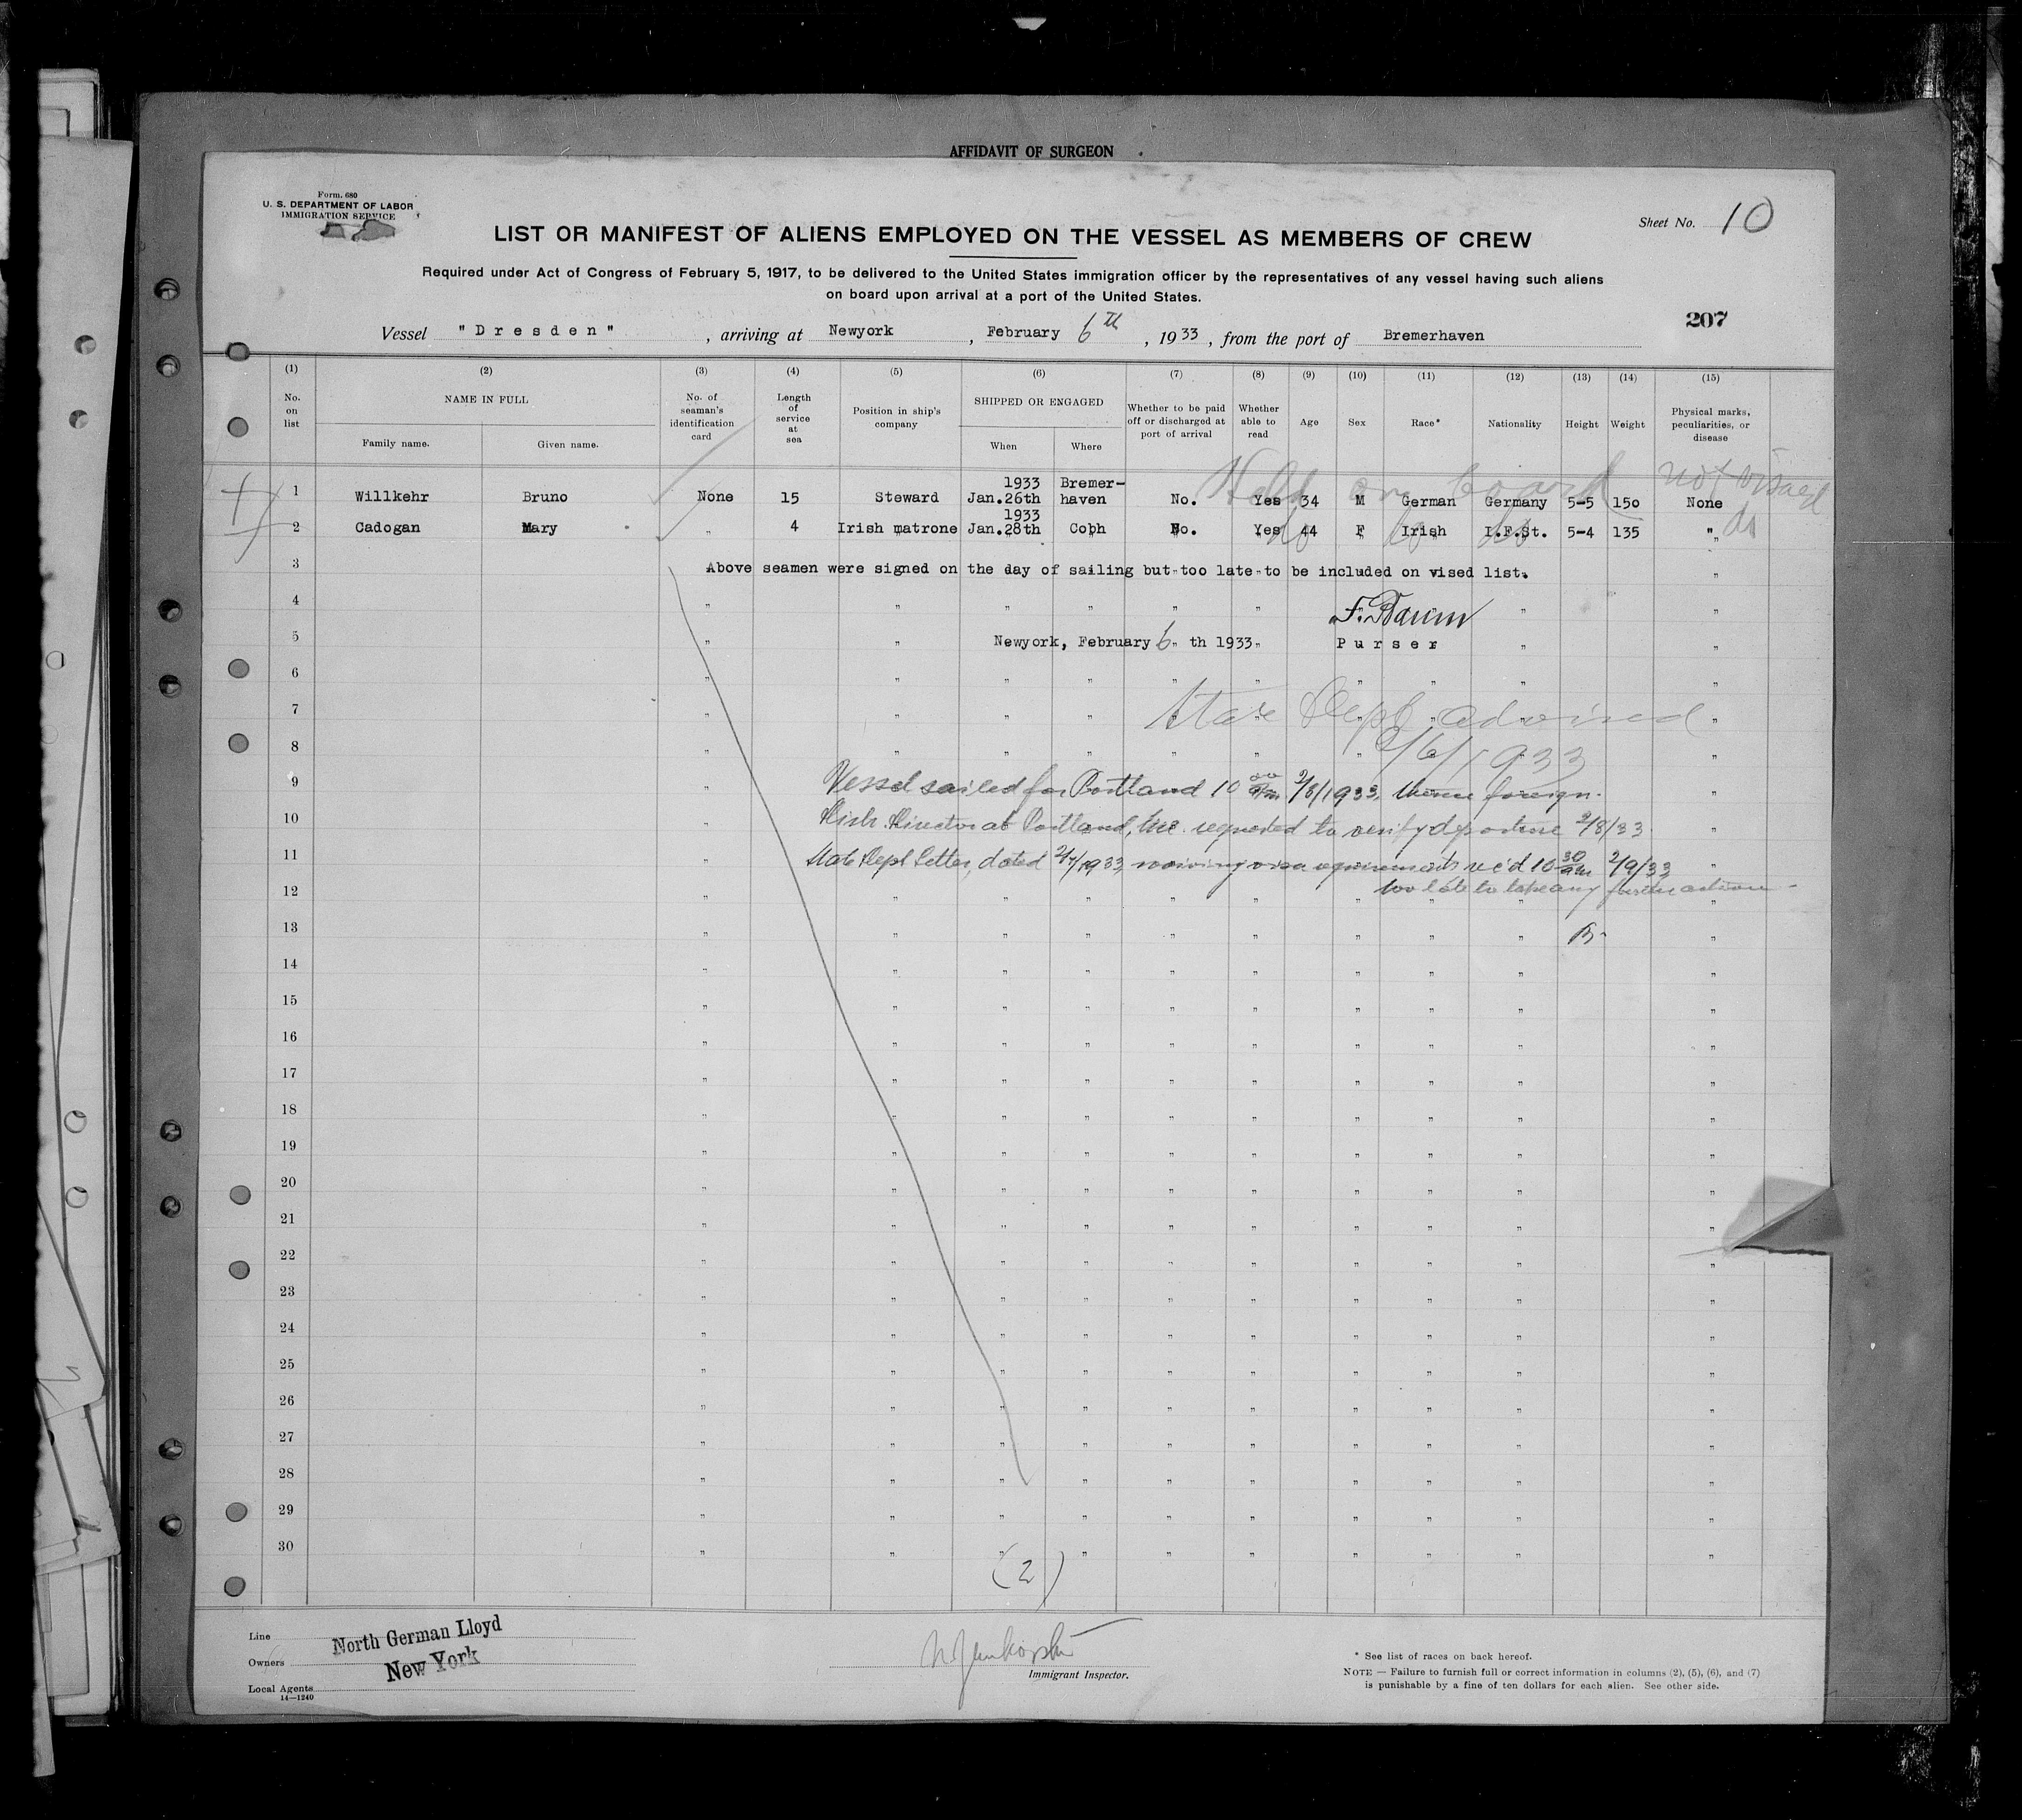 AFFIDAVIT OF SURGEON
Form. 680
U. S. DEPARTMENT OF LABOR
IMMIGRATION SERVICE
Sheet No. 10
LIST OR MANIFEST OF ALIENS EMPLOYED ON THE VESSEL AS MEMBERS OF CREW
Required under Act of Congress of February 5, 1917, to be delivered to the United States immigration officer by the representatives of any vessel having such aliens
on board upon arrival at a port of the United States.
207
Vessel "Dresden", arriving at Newyork, February 6th, 1933, from the port of Bremerhaven
(1) (2) (3) (4) (5) (6) (7) (8) (9) (10) (11) (12) (13) (14) (15)
No. on list NAME IN FULL Family name. Given name. No. of seaman's identification card Length of service at sea Position in ship's company SHIPPED OR ENGAGED When Where Whether to be paid off or discharged at port of arrival Whether able to read Age Sex Race* Nationality Height Weight Physical marks, peculiarities, or disease
Held on board not visaed
1 Willkehr Bruno None 15 Steward 1933 Jan.26th Bremer-haven No. Yes 34 M German Germany 5-5 150 None
2 Cadogan Mary " 4 Irish matrone 1933 Jan.28th Cobh No. Yes 44 F Irish I.F.St. 5-4 135 "
do do do do
3 Above seamen were signed on the day of sailing but too late to be included on vised list.
4 F. Baum
5 Newyork, February 6 th 1933 Purser
6
7 State Dept advised
8 2/6/1933
9 Vessel sailed for Portland 10 00 am 2/8/1933, thence foreign.
10 Distr. Director at Portland, Me. requested to verify departure 2/8/33
11 State Dept letter, dated 2/7/1933, waiving visa requirements rec'd 10 30 am 2/9/33,
12 too late to take any further action -
13
14
15
16
17
18
19
20
21
22
23
24
25
26
27
28
29
30
(2)
Line
North German Lloyd
Owners
New York
Local Agents
14—1240
Immigrant Inspector.
* See list of races on back hereof.
NOTE — Failure to furnish full or correct information in columns (2), (5), (6), and (7)
is punishable by a fine of ten dollars for each alien. See other side.